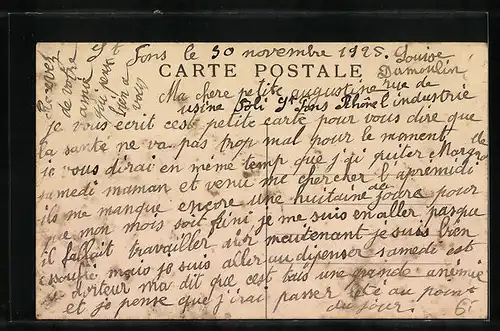 St Fons le 30 novembre 1925. Louise
CARTE POSTALE Dumoulin
Recevez
de votre
amie
qui pense
bien a
vous
Ma chere petite augustine rue de
usine Poli St Fons Rhône l industrie
je vous ecrit ces petite carte pour vous dire que
la santé ne va pas trop mal pour le moment,
je vous dirai en même temp que j ai quiter
samedi maman et venu me chercher l apremidi
ils me manque encore une huitaine de jours pour
que mon mois soit fini je me suis en aller pasque
il fallait travailler dur maintenant je suis bien
mais je suis aller au dipenser samedi est
docteur ma dit que cest tais une grande anémie
et je pense que j'irai passer été au point
du jour.